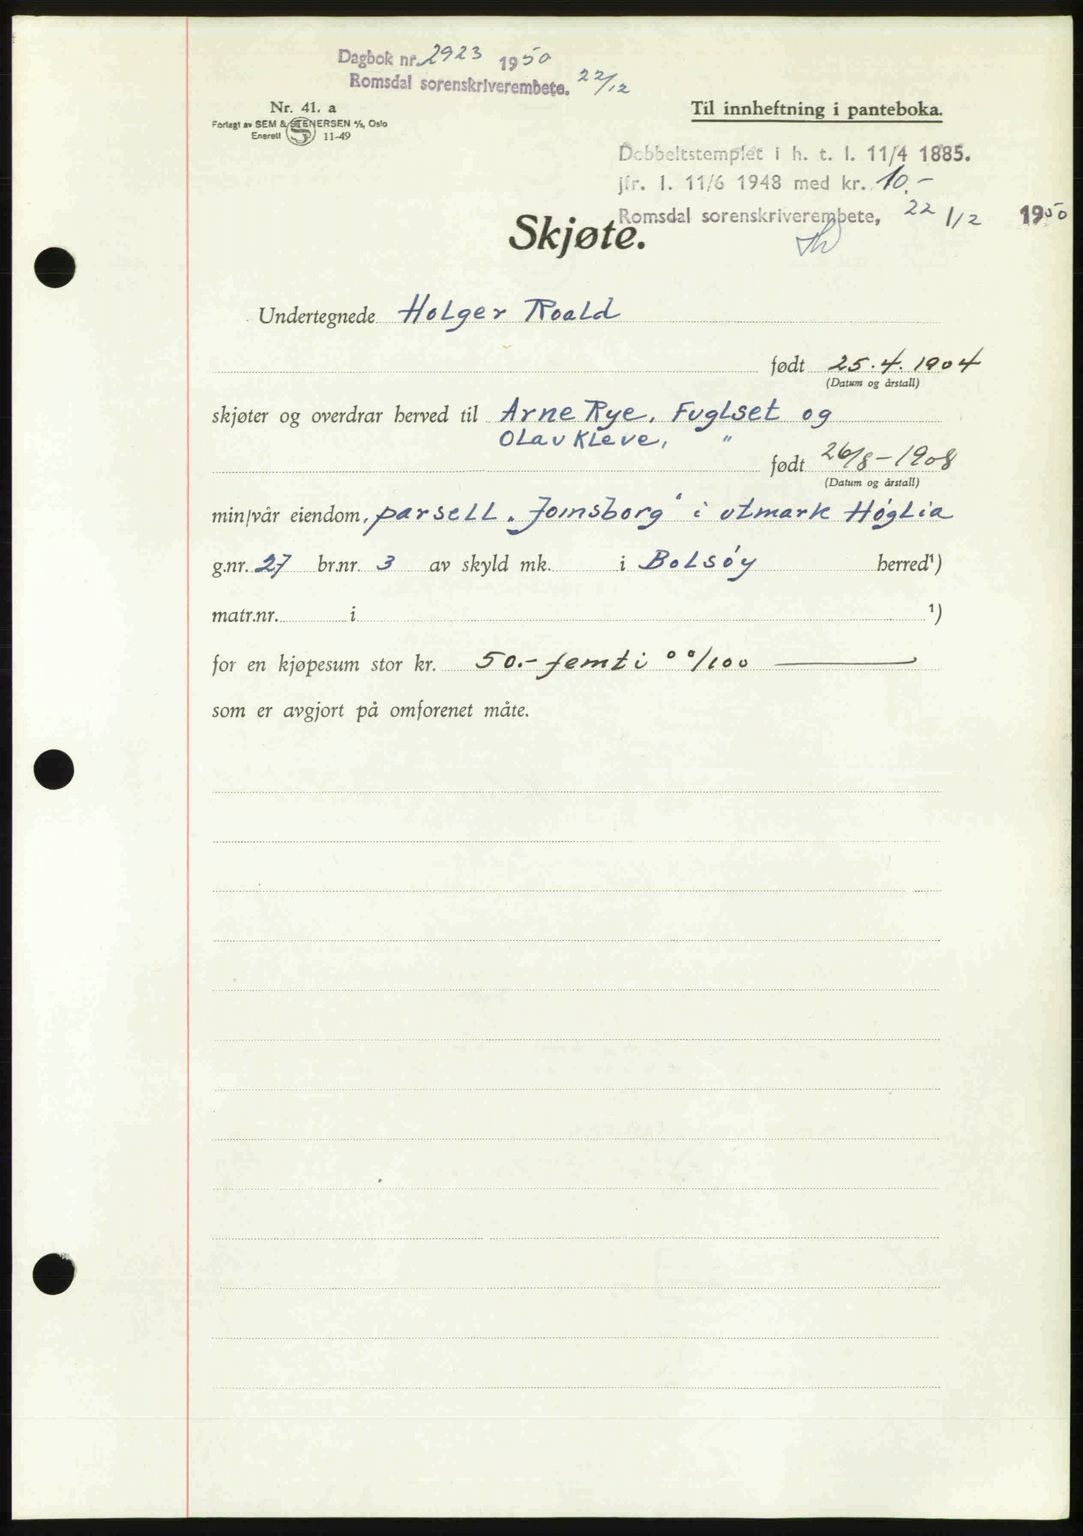 Dagbok nr. 2923 1950
Romsdal sorenskriverembete. 22/12
Nr. 41. a
Forlagt av SEM & STENERSEN A/S, Oslo
Enerett 11-49
Til innheftning i panteboka.
Dobbeltstemplet i h. t. l. 11/4 1885.
jfr. l. 11/6 1948 med kr. 10.-
Romsdal sorenskriverembete, 22/12 1950
Skjøte.
Undertegnede Holger Roald
født 25.4.1904
(Datum og årstall)
skjøter og overdrar herved til Arne Rye, Fuglset og
Olav Kleve, "
født 26/8-1908
(Datum og årstall)
min/vår eiendom, parsell „Jomsborg" i utmark Höglia
g.nr. 27 br.nr. 3 av skyld mk. i Bolsöy herred¹)
matr.nr. i ¹)
for en kjøpesum stor kr. 50.- femti 00/100
som er avgjort på omforenet måte.